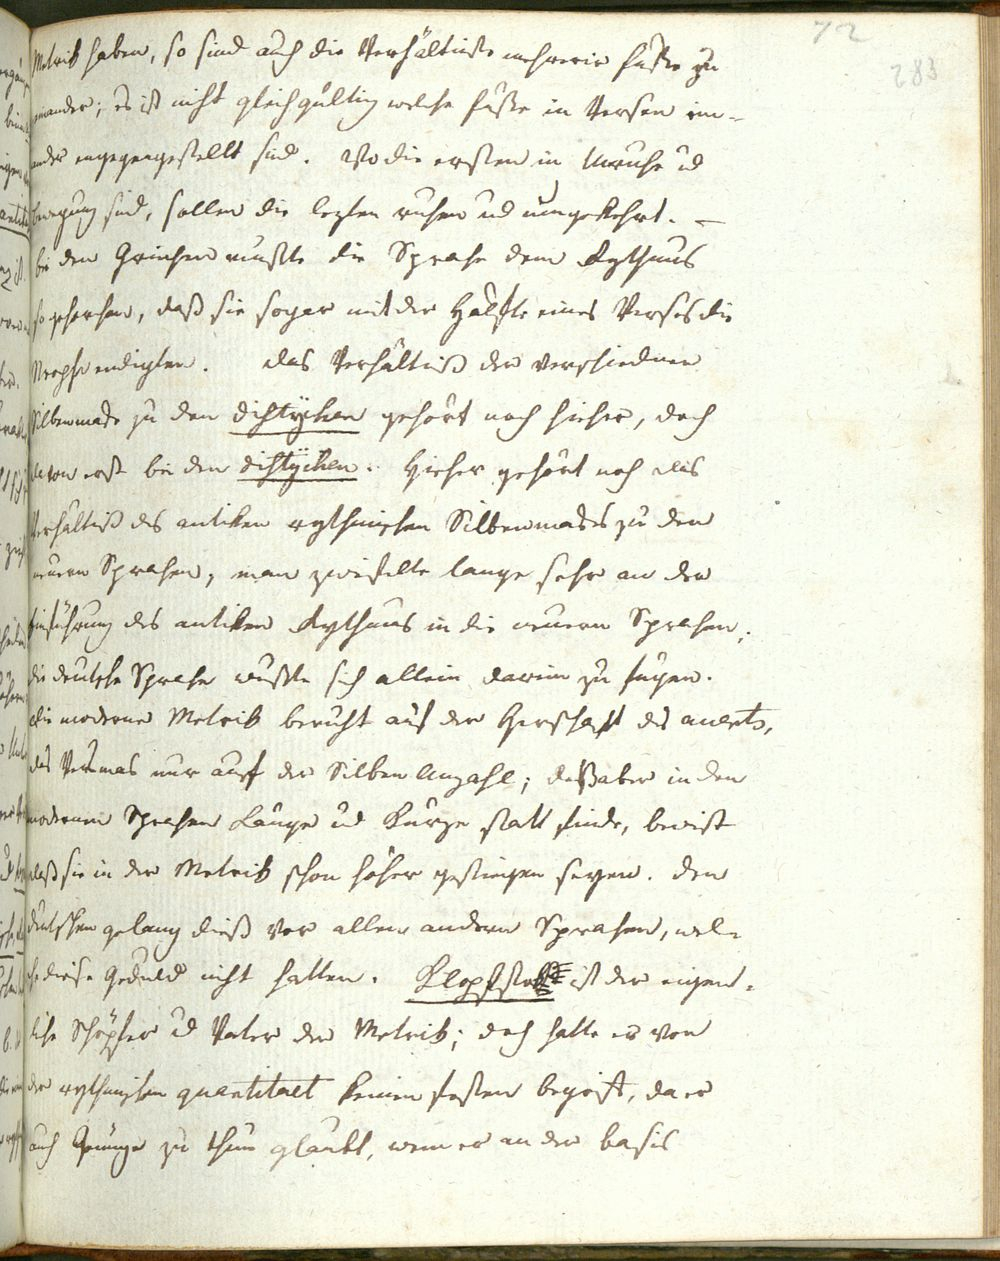 72
283
Metrik haben, so sind auch die Verhältniße mehrerer füße zu
einander; es ist nicht gleichgültig welche füße in Versen ein-
ander engegengestellt sind. Wo die ersten in Unruhe ud
bewegung sind, sollen die lezten ruhen ud umgekehrt. –
bei den Griechen mußte die Sprache dem Rythmus
so gehorchen, daß sie sogar mit der Hälfte eines Verses die
Strophe endigten. das Verhältniß der verschiednen
Silbenmaße zu den dichtarten gehört noch hieher, doch
davon erst bei den dichtarten. Hieher gehört noch das
Verhältniß des antiken rythmischen Silbenmaßes zu den
neuern Sprachen, man zweifelte lange sehr an der
Einführung des antiken Rythmus in die neuern Sprachen,
die deutsche Sprache wußte sich allein darein zu fügen.
die moderne Metrik beruht auf der Herschaft des accents,
das Versmas nur auf der Silben Anzahl; daß aber in den
modernen Sprachen Länge ud Kürze statt finde, beweist
daß sie in der Metrik schon höher gestiegen seyen. den
deutschen gelang dieß vor allen andern Sprachen, wel-
che diese Geduld nicht hatten. Klopfstok ist der eigent-
liche Schöpfer ud Vater der Metrik; doch hatte er von
der rythmischen quantitaet keinen festen begrift, da er
auch Genüge zu thun glaubt, wenn er an der basis